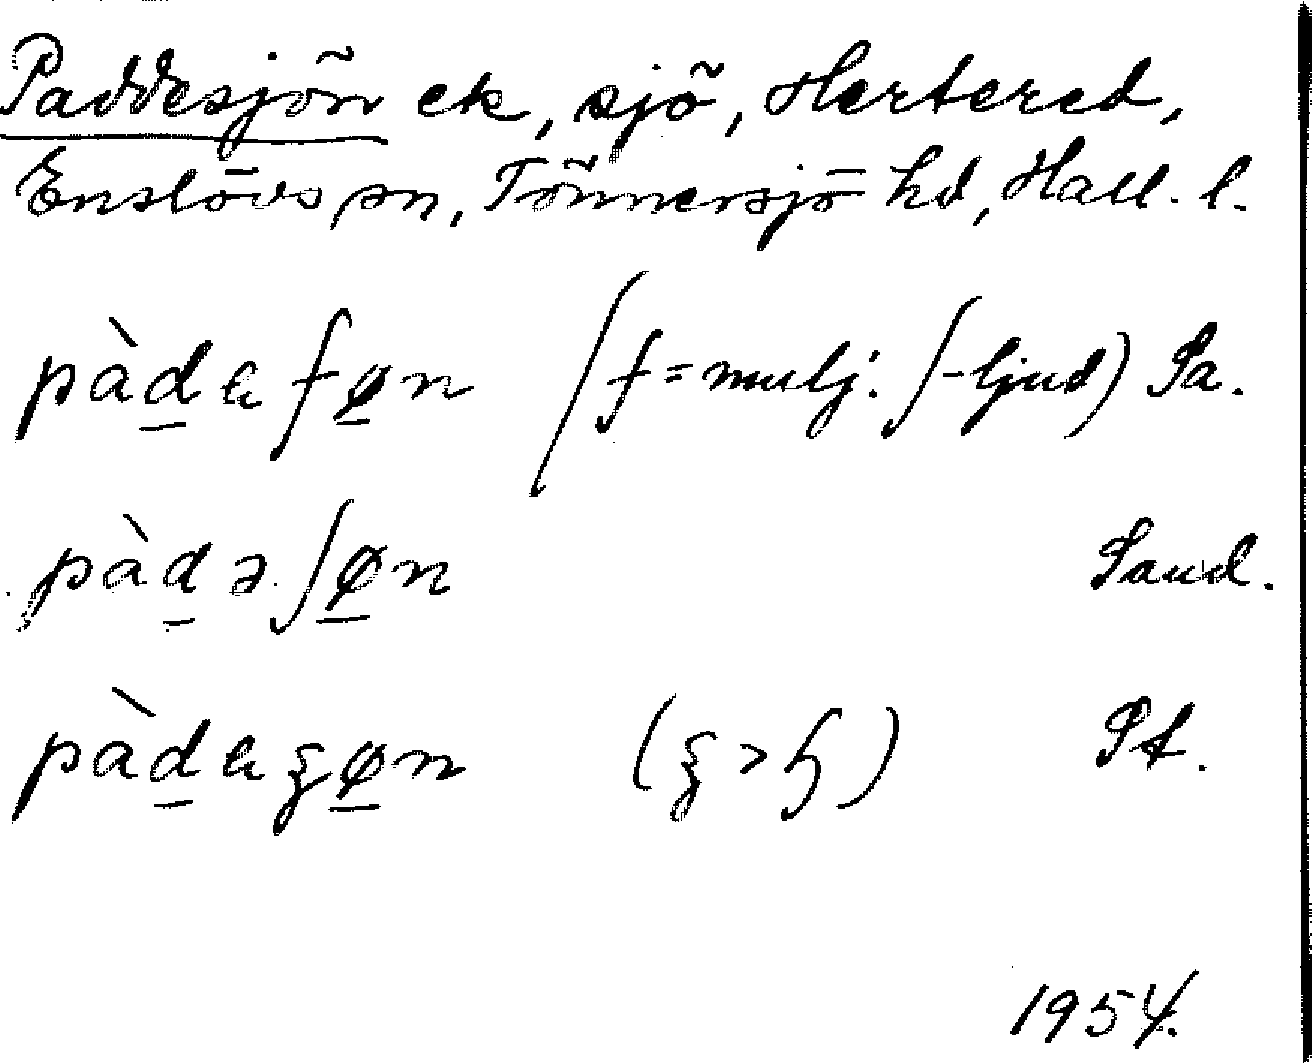 Paddesjön ek, sjö, Hertered,
Enslövs sn, Tönnersjö hd, Hall. l.
pàd̲aʃø̲n (ʃ = mulj. ʃ-ljud) Pa.
pàd̲əʃø̲n Paud.
pàd̲aʒø̲n (ʒ > ɧ) Pf.
1954.